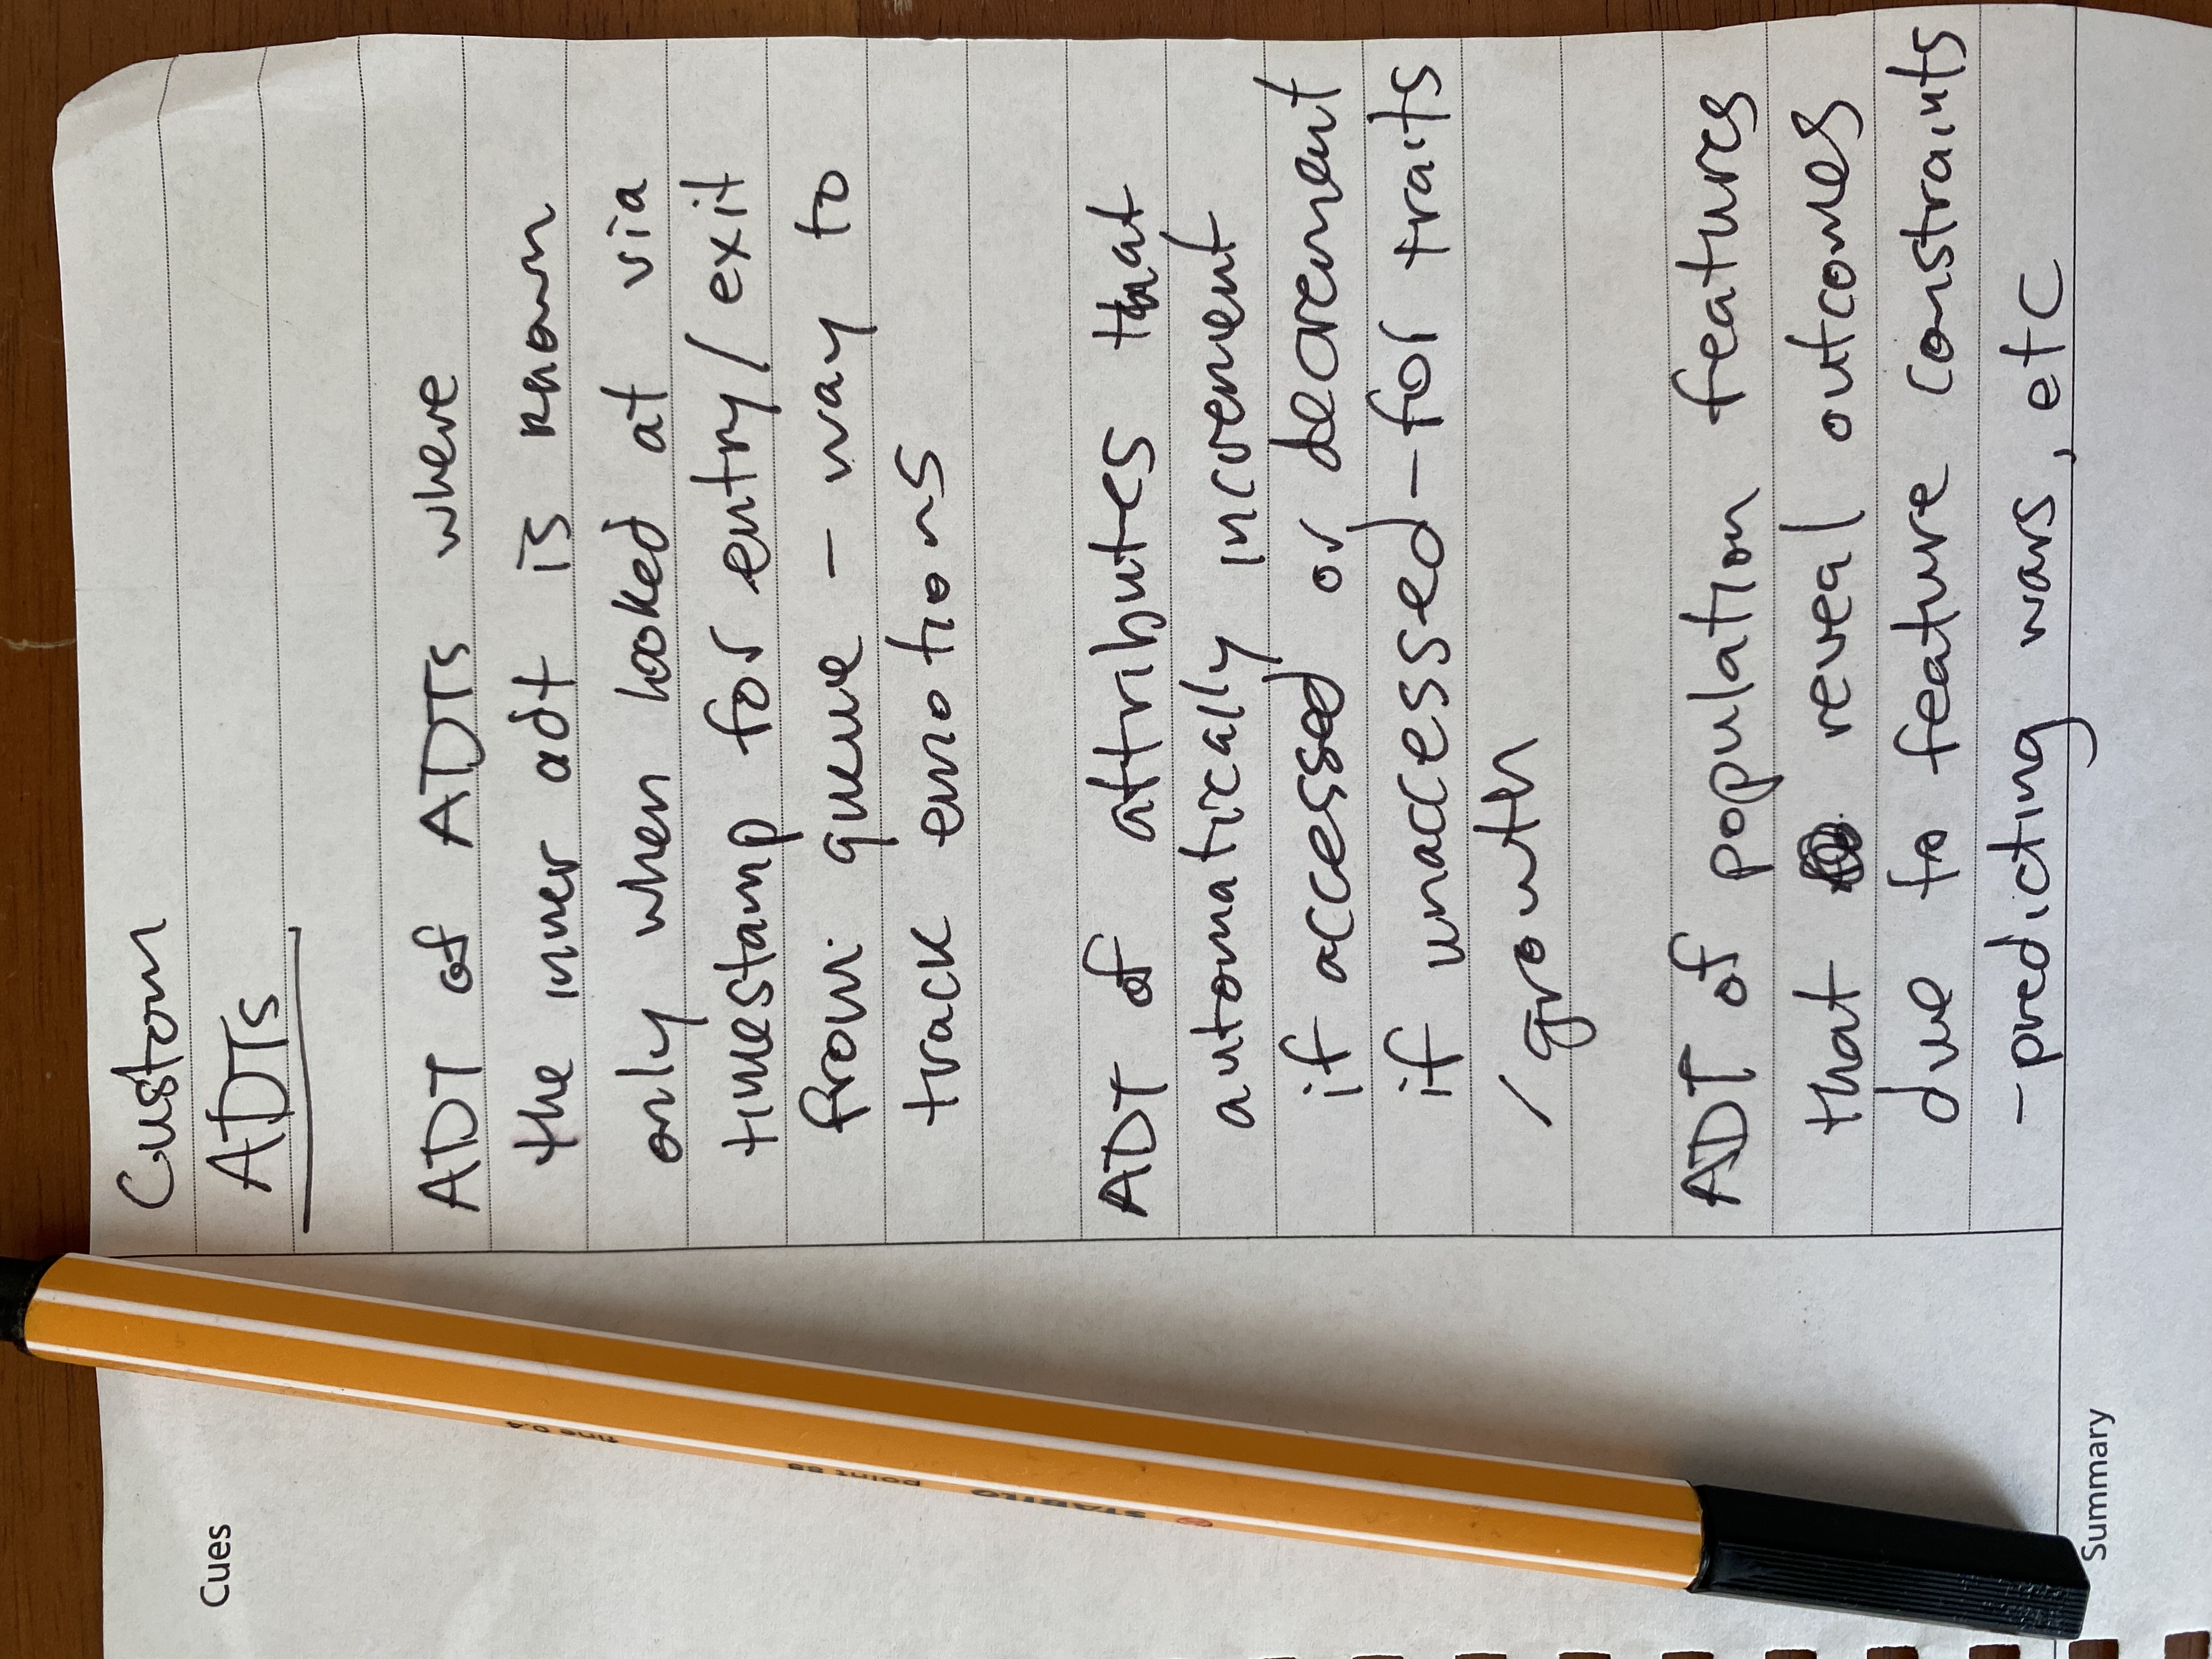 Custom
ADTs
ADT of ADTs where
the inner adt is known
only when looked at via
timestamp for entry/exit
from queue - way to
track emotions
ADT of attributes that
automatically increment
if accessed or decrement
if unaccessed - for traits
/growth
ADT of population features
that reveal outcomes
due to feature constraints
- predicting wars, etc
Cues
Summary
STABILO
point 88
fine 0.4